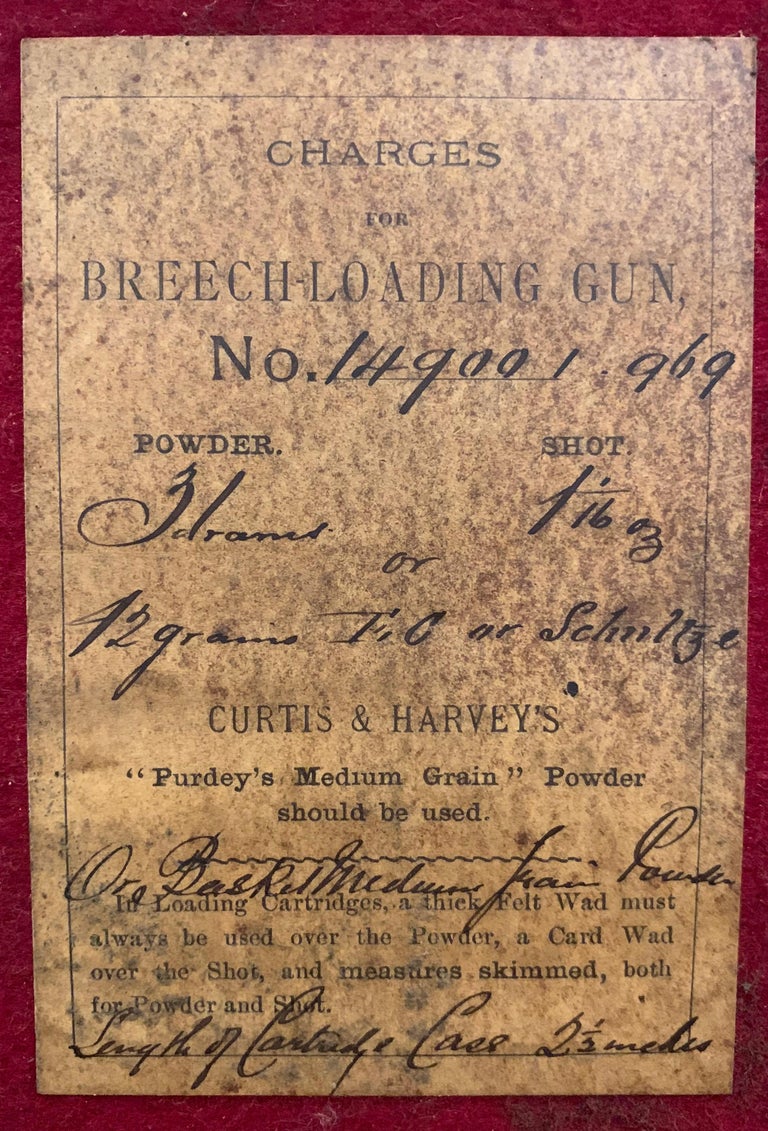 CHARGES
FOR
BREECH-LOADING GUN,
No. 14900 1 . 969
POWDER. SHOT.
3 drams 1 1/16 oz
or
42 grains E.C or Schultze
CURTIS & HARVEY'S
"Purdey's Medium Grain" Powder
should be used.
Or, Basket Medium Grain Powder
In Loading Cartridges, a thick Felt Wad must
always be used over the Powder, a Card Wad
over the Shot, and measures skimmed, both
for Powder and Shot.
Length of Cartridge Case 2 1/2 inches